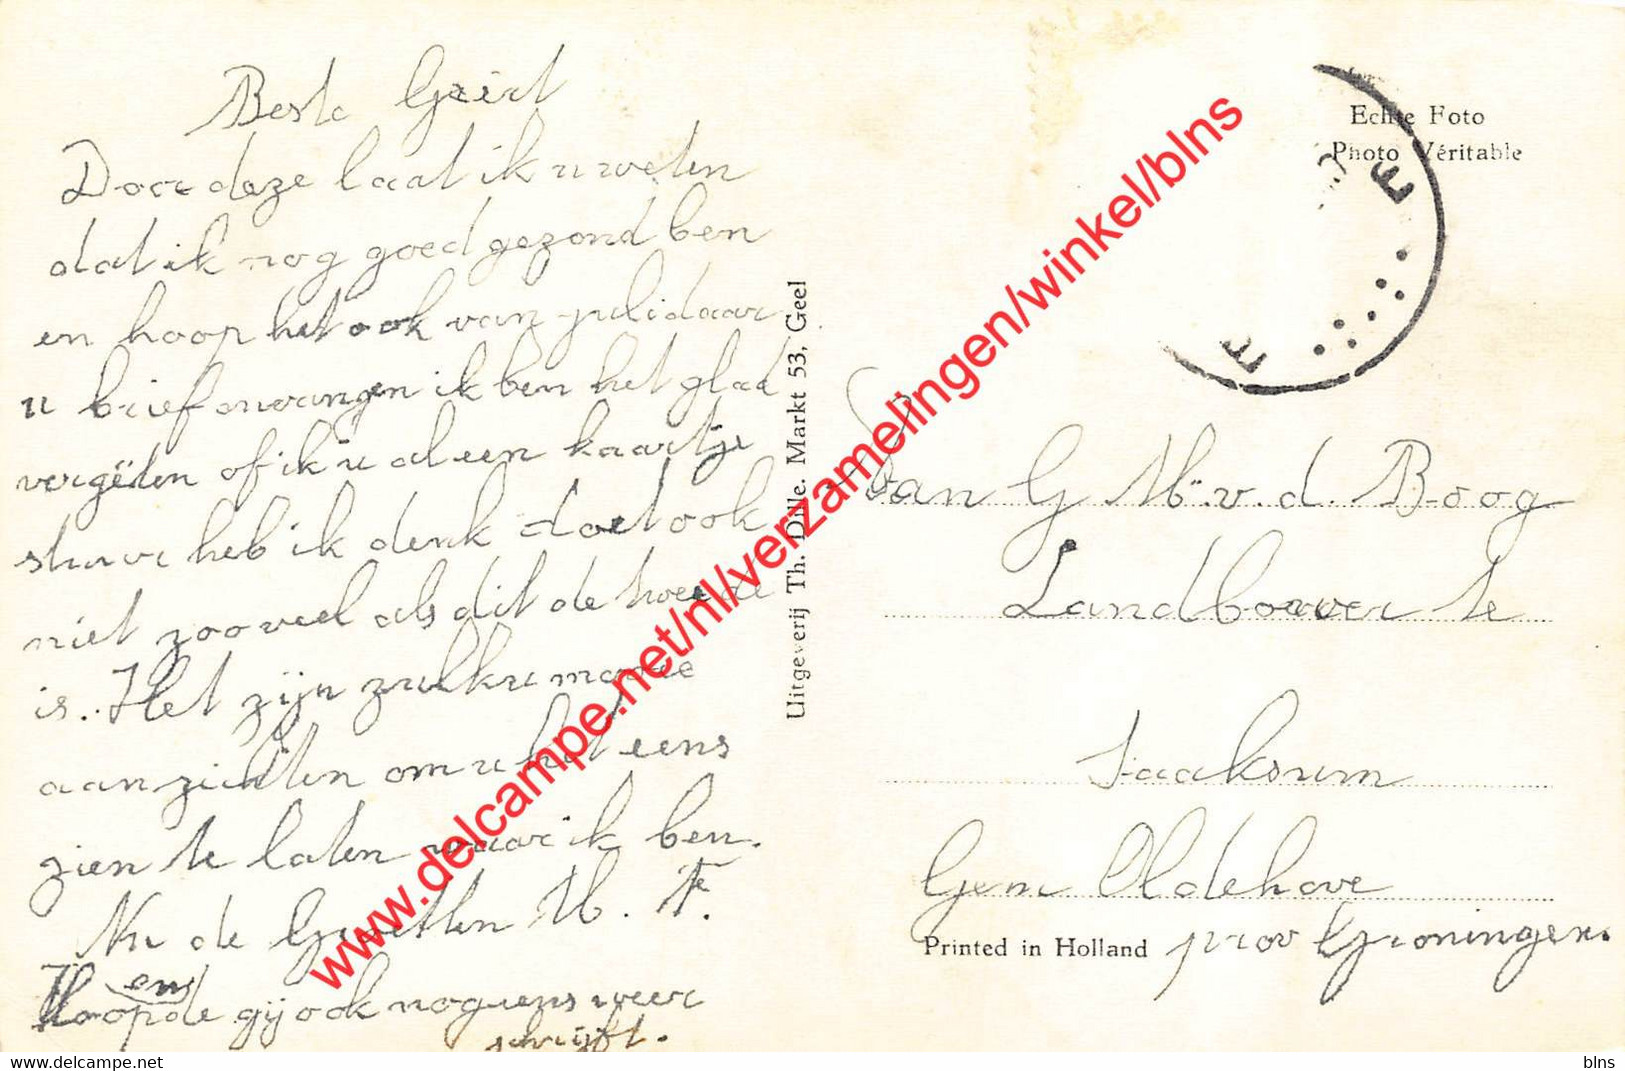 Beste Geert
Door deze laat ik u weten
dat ik nog goed gezond ben
en hoop het ook van julidaar
u brief onvangen ik ben het glad
vergëten of ik u al een kaartje
stuur heb ik denk doet ook
niet zooveel als dit de tweede
is. Het zijn zulke mooie
aanzichten om u het eens
zien te laten waar ik ben.
Nu de Groetten M. F.
en
Hoop de gij ook nog eens weer
schrijft.
Uitgeverij Th. Dille. Markt 53, Geel
Echte Foto
Photo Véritable
E
T
Van G M. v. d. Boog
Landbouwer te
Saaksum
Gem Oldehove
Printed in Holland prov Groningen.
www.delcampe.net/nl/verzamelingen/winkel/blns
blns